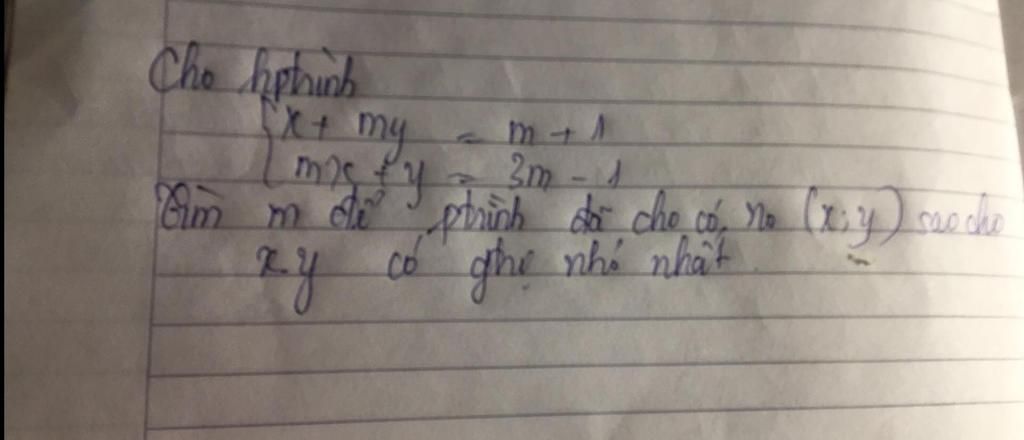 Cho hptrình
x + my = m + 1
mx + y = 3m - 1
Tìm m để ptrình đã cho có no (x; y) sao cho
xy có gtrị nhỏ nhất